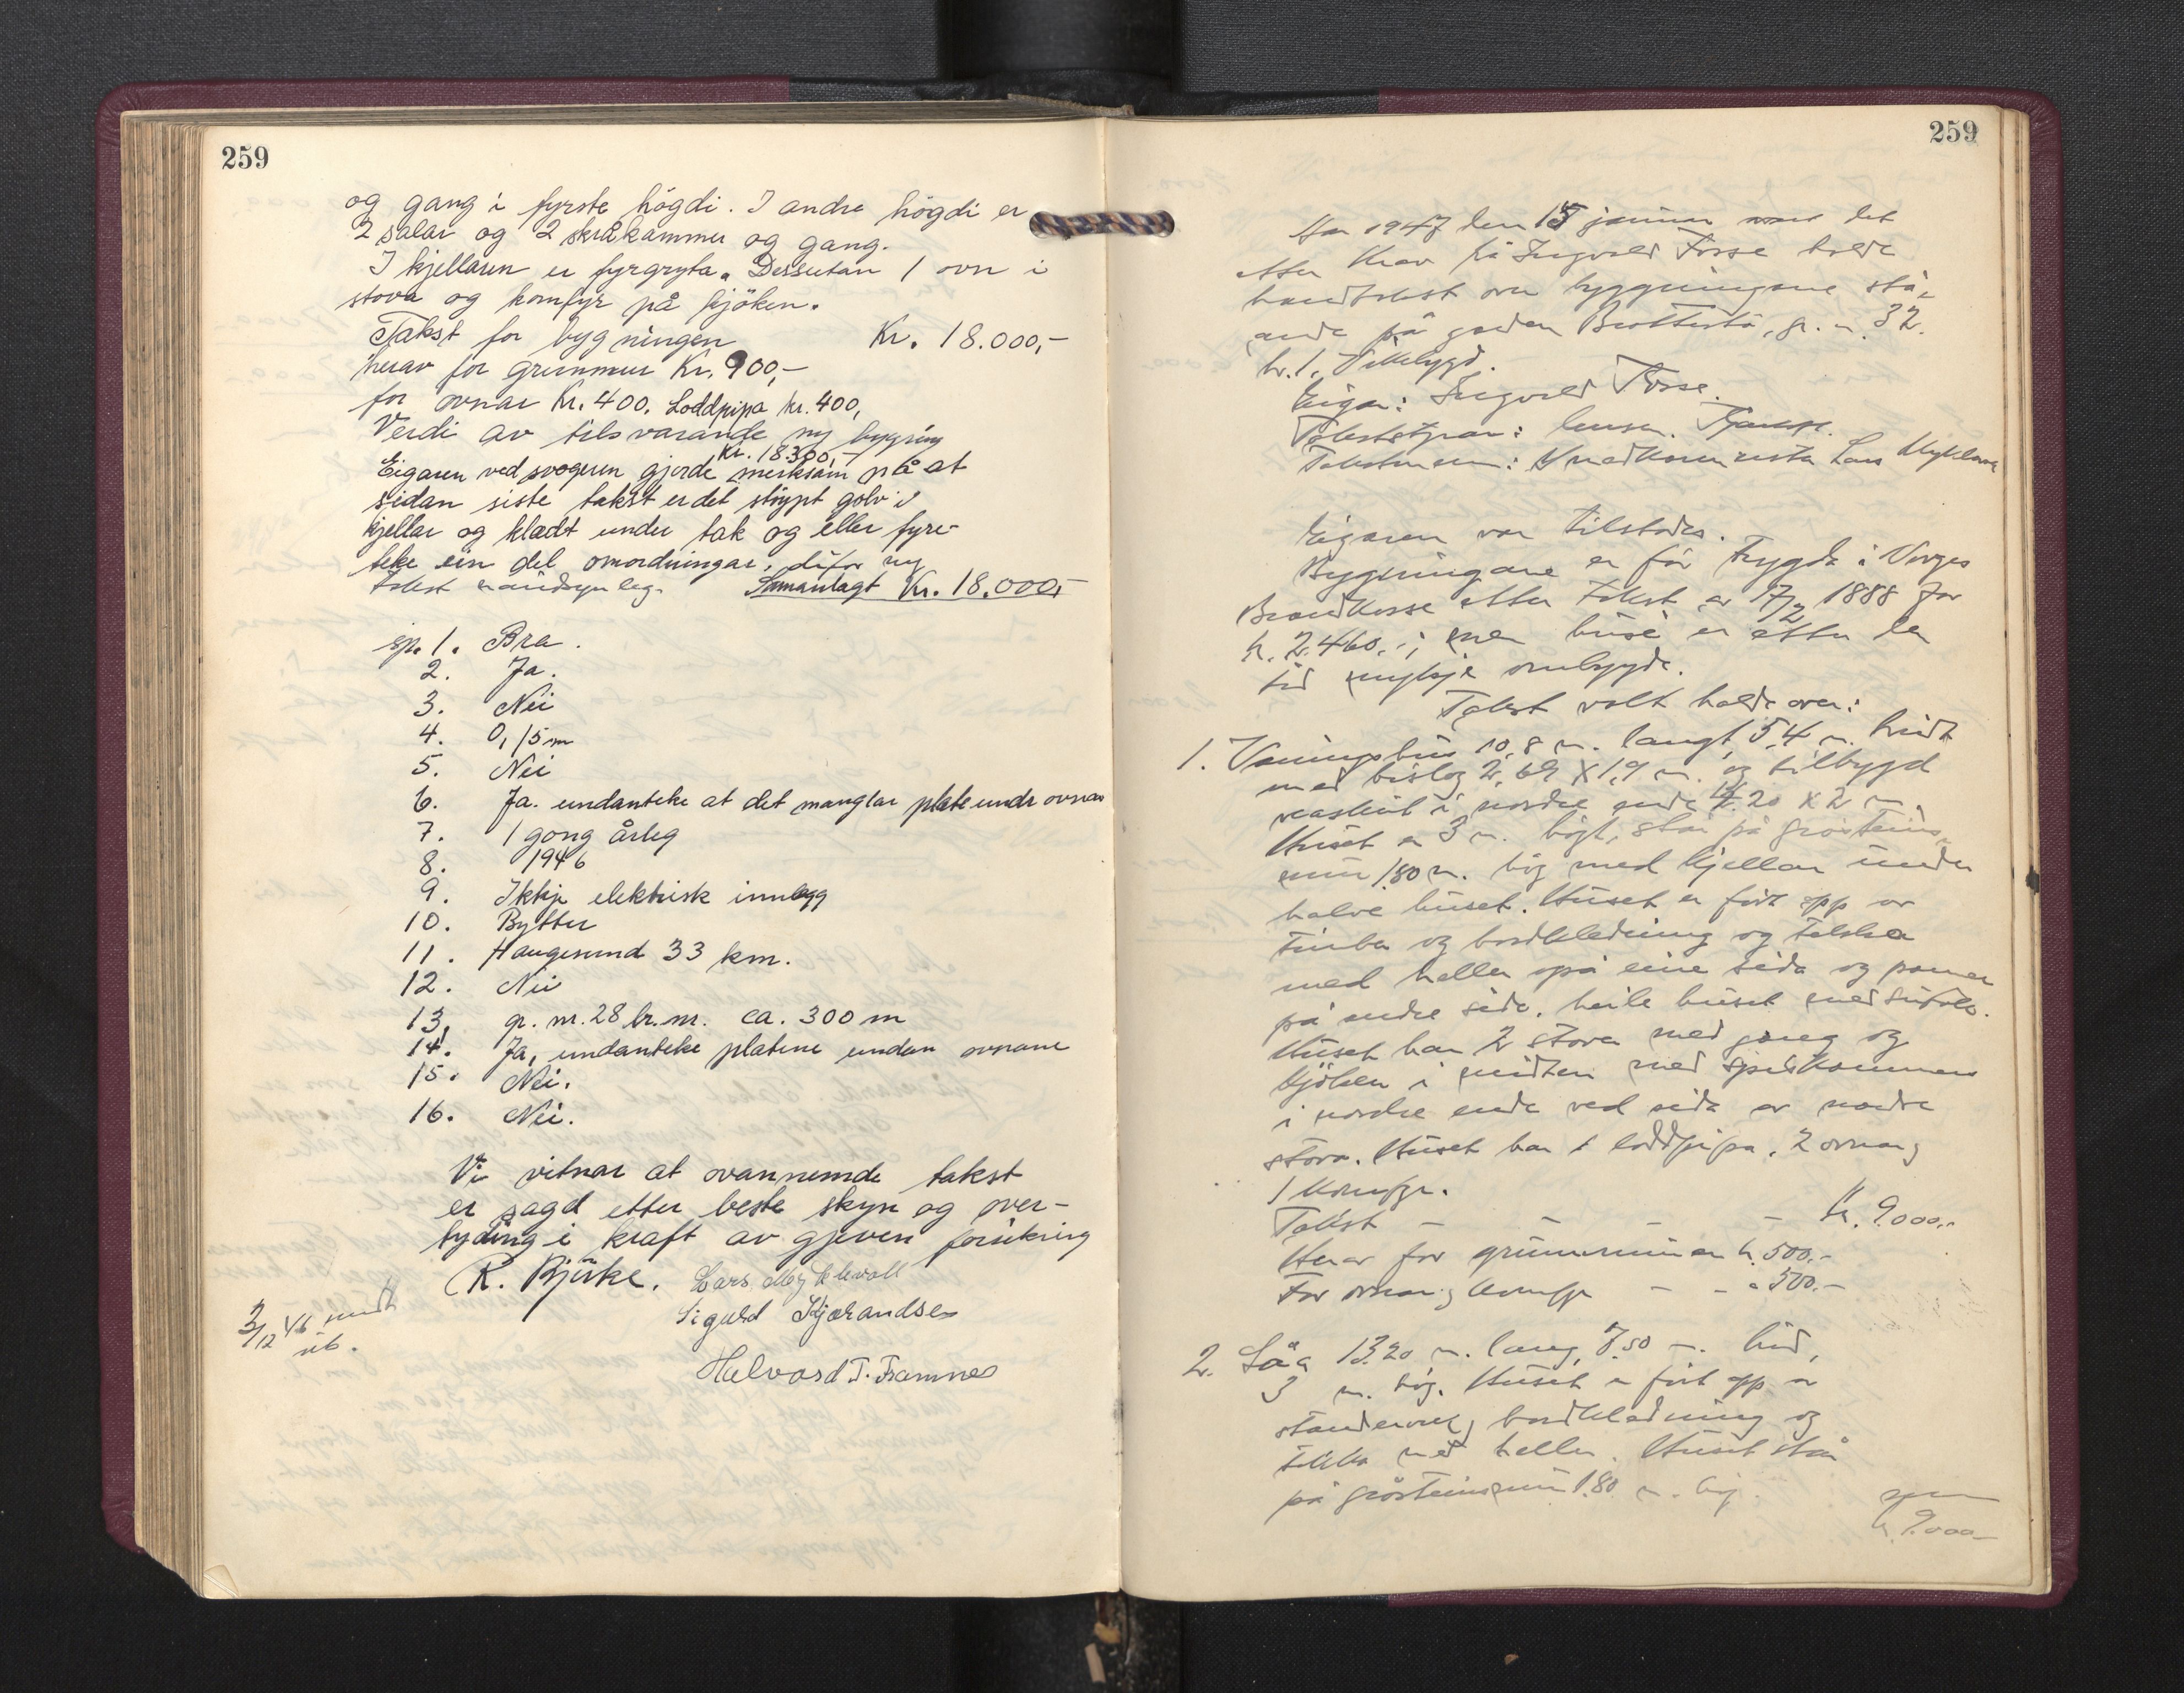 259
og gang i fyrste högdi. I andre högdi er
2 salar og 2 skråkammer og gang.
I kjellaren er fyrgryta. Dessutan 1 ovn i
stova og komfyr på kjöken.
Takst for bygningen Kr. 18.000,-
herav for grunnmur Kr. 900,-
for ovnar Kr. 400. Loddpipa kr. 400,
Verdi av tilsvarande ny bygning
Kr. 18300,-
Eigaren ved svogeren gjorde merksam på at
sidan siste takst er det stöypt golv i
kjellar og klædt under tak og eller fyre-
teke ein del omordningar, difor ny
takst naudsynleg. Samanlagt Kr. 18.000,-
sp. 1. Bra.
2. Ja.
3. Nei
4. 0,15 m
5. Nei
6. Ja. undanteke at det manglar plate under ovnar
7. 1 gong årleg
8. 1946
9. Ikkje elektrisk innlegg
10. Bytter
11. Haugesund 33 km.
12. Nei
13. gr. nr. 28 br. nr. ca. 300 m
14. Ja, undanteke platene undan ovnane
15. Nei.
16. Nei.
Vi vitnar at ovannemde takst
er sagd etter beste skyn og over-
tyding i kraft av gjeven forsikring
R. Bjerke. Lars Myklevoll
Sigurd Kjærandsen
Halvard T. Framnes
3/12 46
utb.
259
År 1947 den 15 januar vart det
etter krav frå Ingvald Fosse halde
branntakst over bygningane stå-
ande på garden Brattestø, gr. nr. 32
br. 1, Vikebygd.
Eigar: Ingvald Fosse.
Takststyrar: lensm.
Takstmenn: Lars Myklevoll
Eigaren var tilstades.
Bygningane er før trygda i Norges
Brandkasse etter takst av 17/2 1888 for
kr. 2.460.-; men huse er etter den
tid mykje ombygde.
Takst vart halde over:
1. Våningshus 10,8 m. langt, 5,4 m. breidt
med bislag 2,64 x 1,9 m. og tilbygd
vedskut i nordre ende 4.20 x 2 m.
Huset er 3 m. högt, står på gråsteins-
mur 1.80 m. hög med kjellar under
halve huset. Huset er fört opp av
timber og bordkledning og tekka
med heller på eine sida og panner
på andre sida. heile huset med
Huset har 2 stover med gang og
kjöken i midten med spiskammer
i nordre ende ved sida av nordre
stova. Huset har 1 loddpipa, 2 ovnar,
1 komfyr.
Takst - - - - kr. 9000.-
Herav for grunnmuren kr. 500.-
For ovnar og komfyr - - " 500.-
2. Løa 13.20 m. lang, 7.50 m. breid,
3 m. hög. Huset er fört opp av
standerverk, bordkledning og
tekka med heller. Huset står
på gråsteinsmur 1.80 m. hög.
kr. 9.000.-